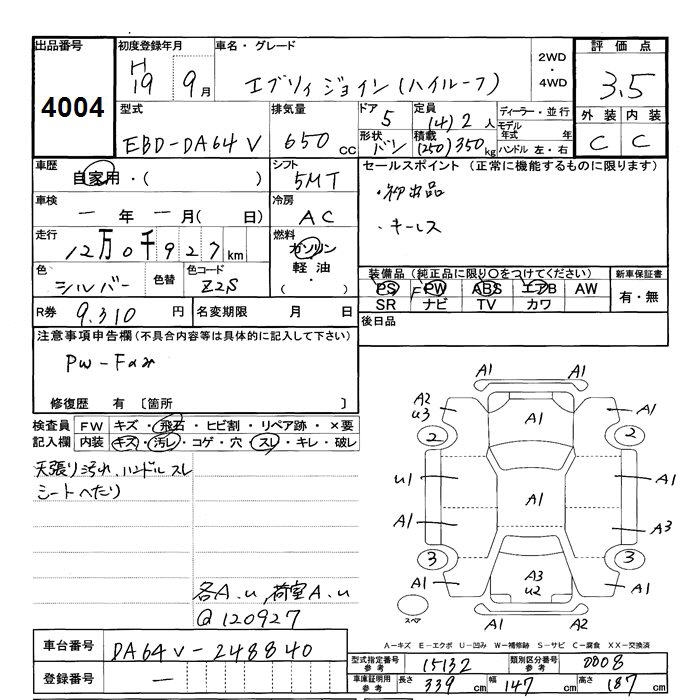 出品番号
4004
初度登録年月
H 19 9月
車名・グレード
エブリィ ジョイン(ハイルーフ)
2WD
・
4WD
評価点
3.5
外装 内装
C C
型式
EBD-DA64V
排気量
650 cc
ドア 5
形状 バン
定員 (4) 2 人
積載 (250) 350 kg
ディーラー・並行
モデル年式 年
ハンドル 左・右
車歴
自家用・( )
シフト
5MT
セールスポイント (正常に機能するものに限ります)
・初出品
・キーレス
車検
ー 年 ー 月( 日)
冷房
AC
走行
12万0千927km
燃料
ガソリン
軽油・
( )
色
シルバー
色替
色コード
Z2S
装備品(純正品に限り○をつけてください)
PS FPW ABS エアB AW
SR ナビ TV カワ
新車保証書
有・無
R券 9.310 円
名変期限 月 日
後日品
注意事項申告欄(不具合内容等は具体的に記入して下さい)
修復歴 有 〔箇所 〕
検査員記入欄
FW キズ・飛石・ヒビ割・リペア跡・×要
内装 キズ・汚レ・コゲ・穴・スレ・キレ・破レ
天張り汚れ、ハンドルスレ
シートへたり
各A.u,荷室A.u
@120927
A1 A1
A2
u3
A1
A1
2 2
u1 A1
A1
A1 A3
3 3
A1
A3
u2
A1
スペア
A1 A2
A-キズ E-エクボ U-凹み W-補修跡 S-サビ C-腐食 XX-交換済
車台番号
DA64V-248840
登録番号
ー
型式指定番号 参考
15132
類別区分番号 参考
0008
車庫証明用 参考
長さ 339 cm 幅 147 cm 高さ 187 cm